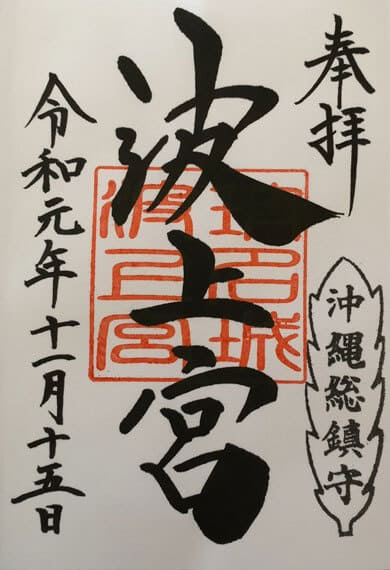 奉拝
沖縄総鎮守
波上宮
波上宮
令和元年十一月十五日